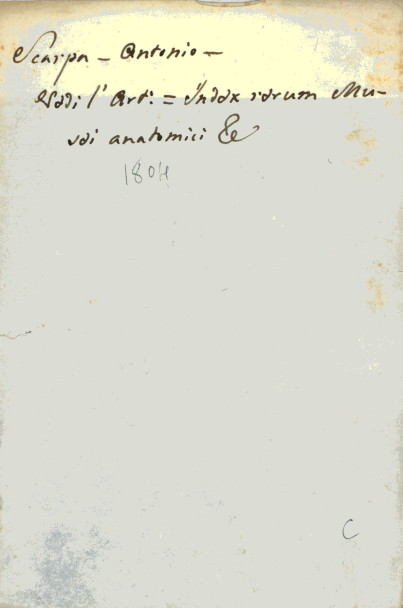 Scarpa - Antonio -
Vedi l' Art: = Index rerum Mu-
sei anatomici &
1804
C